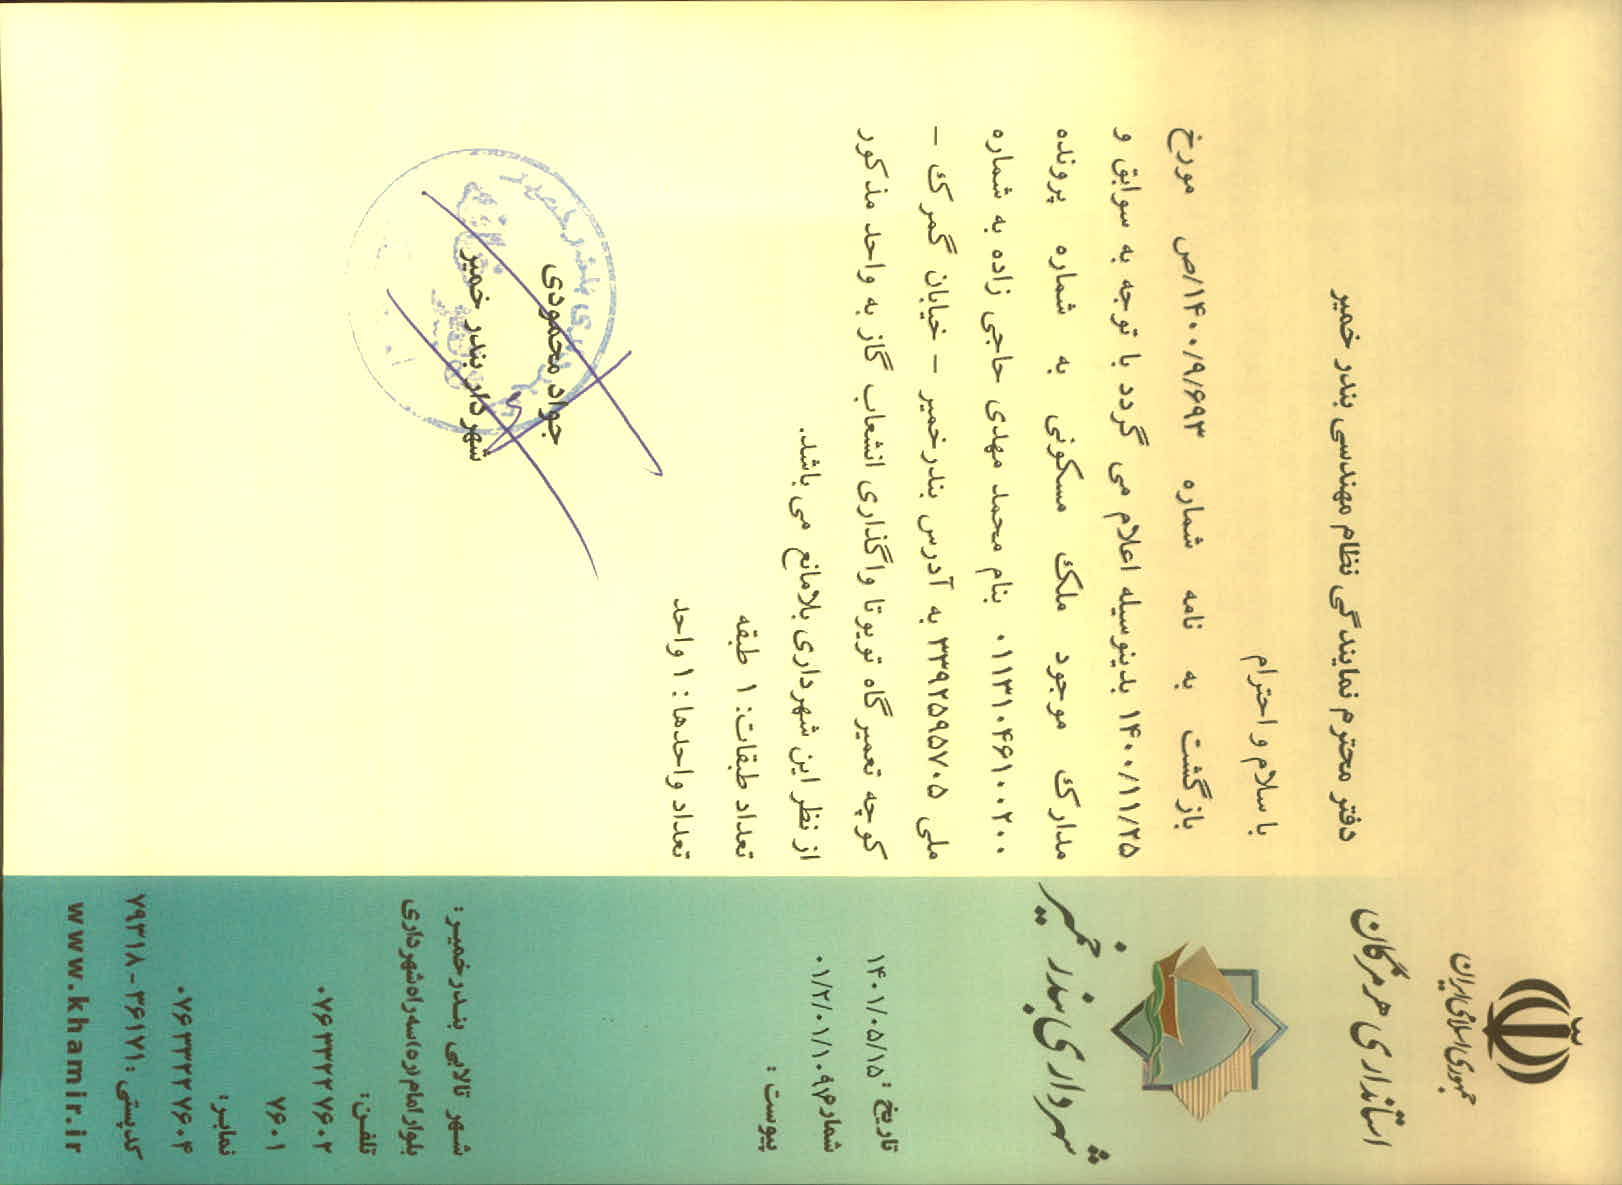 جمهوری اسلامی ایران
استانداری هرمزگان
شهرداری بندر خمیر
تاریخ : ۱۴۰۱/۰۵/۱۵
شماره ۰۱/۲/۰۱/۱۰۹۴
پیوست :
دفتر محترم نمایندگی نظام مهندسی بندر خمیر
با سلام و احترام
بازگشت به نامه شماره ۱۴۰۰/۹/۶۹۳/ص مورخ
۱۴۰۰/۱۱/۲۵ بدینوسیله اعلام می گردد با توجه به سوابق و
مدارک موجود ملک مسکونی به شماره پرونده
۰۱۱۳۱۰۴۶۱۰۰۲۰۰ بنام محمد مهدی حاجی زاده به شماره
ملی ۳۳۹۲۵۹۵۷۰۵ به آدرس بندرخمیر – خیابان گمرک –
کوچه تعمیرگاه تویوتا واگذاری انشعاب گاز به واحد مذکور
از نظر این شهرداری بلامانع می باشد.
تعداد طبقات: ۱ طبقه
تعداد واحدها : ۱ واحد
جواد محمودی
شهردار بندر خمیر
شهر تالابی بندرخمیر:
بلوار امام (ره) سه راه شهرداری
تلفن:
۰۷۶۳۳۲۲۷۶۰۲
۷۶۰۱
نمابر:
۰۷۶۳۳۲۲۷۶۰۴
کدپستی : ۳۶۱۷۱ - ۷۹۳۱۸
www.khamir.ir